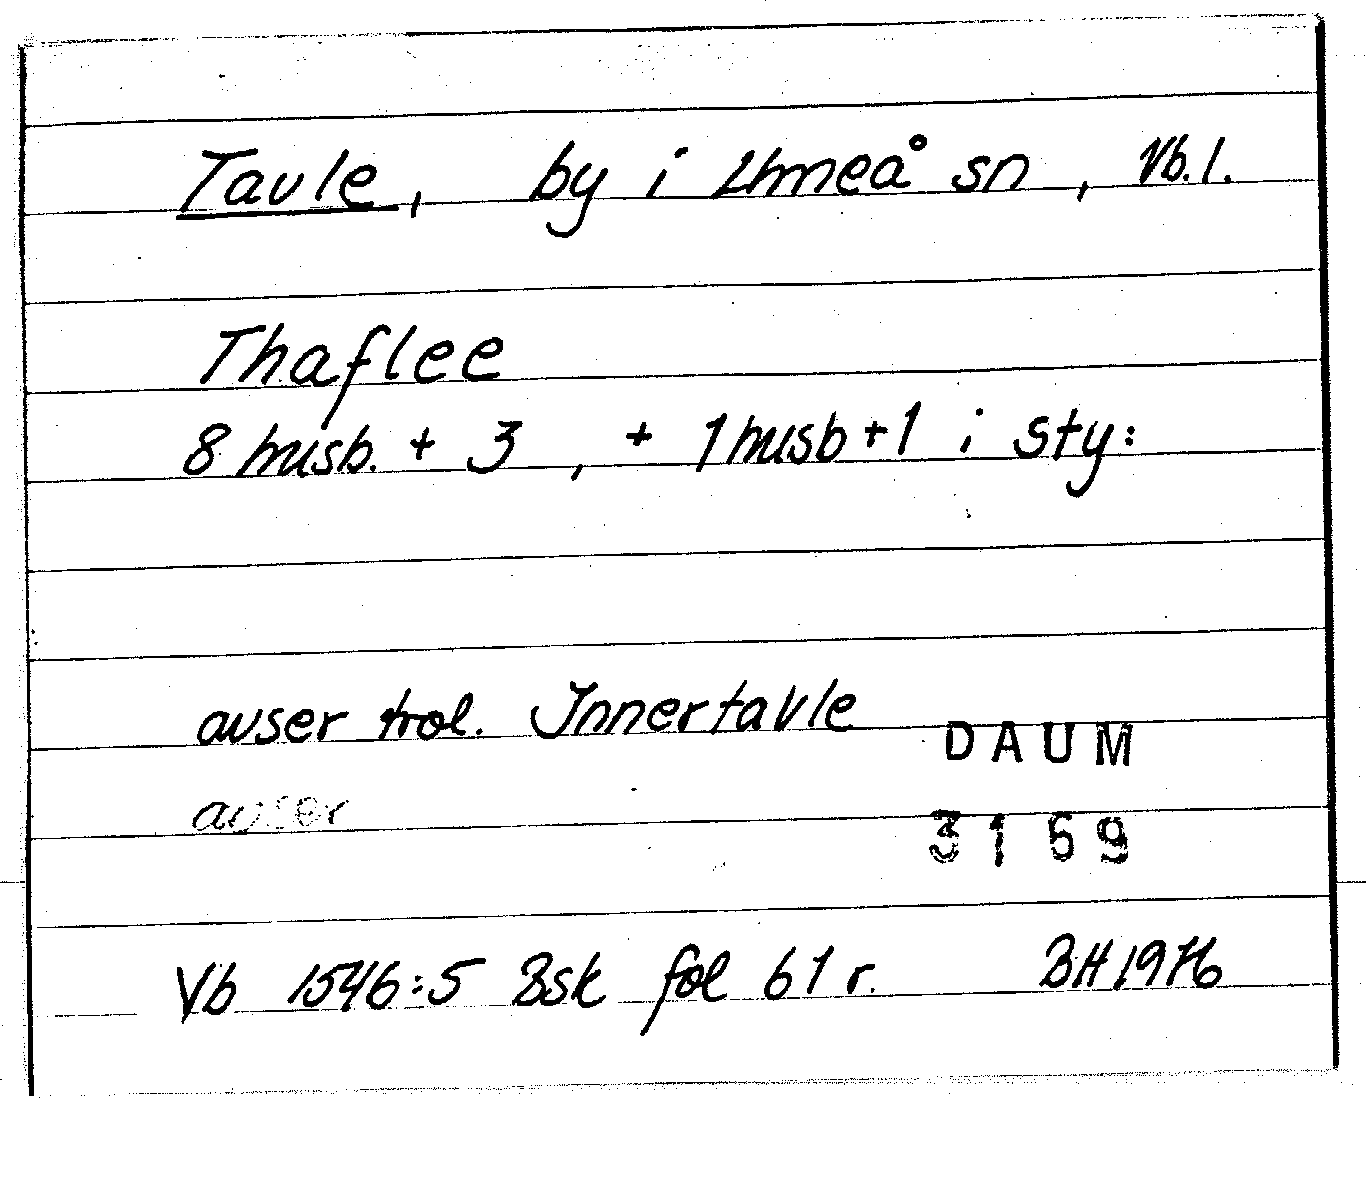 Tavle, by i Umeå sn, Vb. l.
Thaflee
8 husb. + 3 , + 1 husb + 1 i sty:
avser trol. Innertavle
DAUM
avser
3169
Vb 1546:5 Bsk fol 61 r. BH 1976